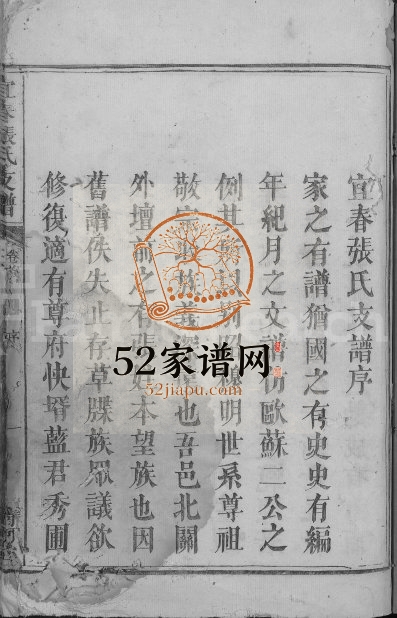 宜春張氏支譜序
家之有譜猶國之有史史有編
年紀月之文譜仿歐蘇二公之
例其明世系尊祖
敬也吾邑北關
外壇前之有張本望族也因
舊譜佚失止存草牒族眾議欲
修復適有尊府快壻藍君秀圃
宜春張氏支譜
52家谱网
52jiapu.com